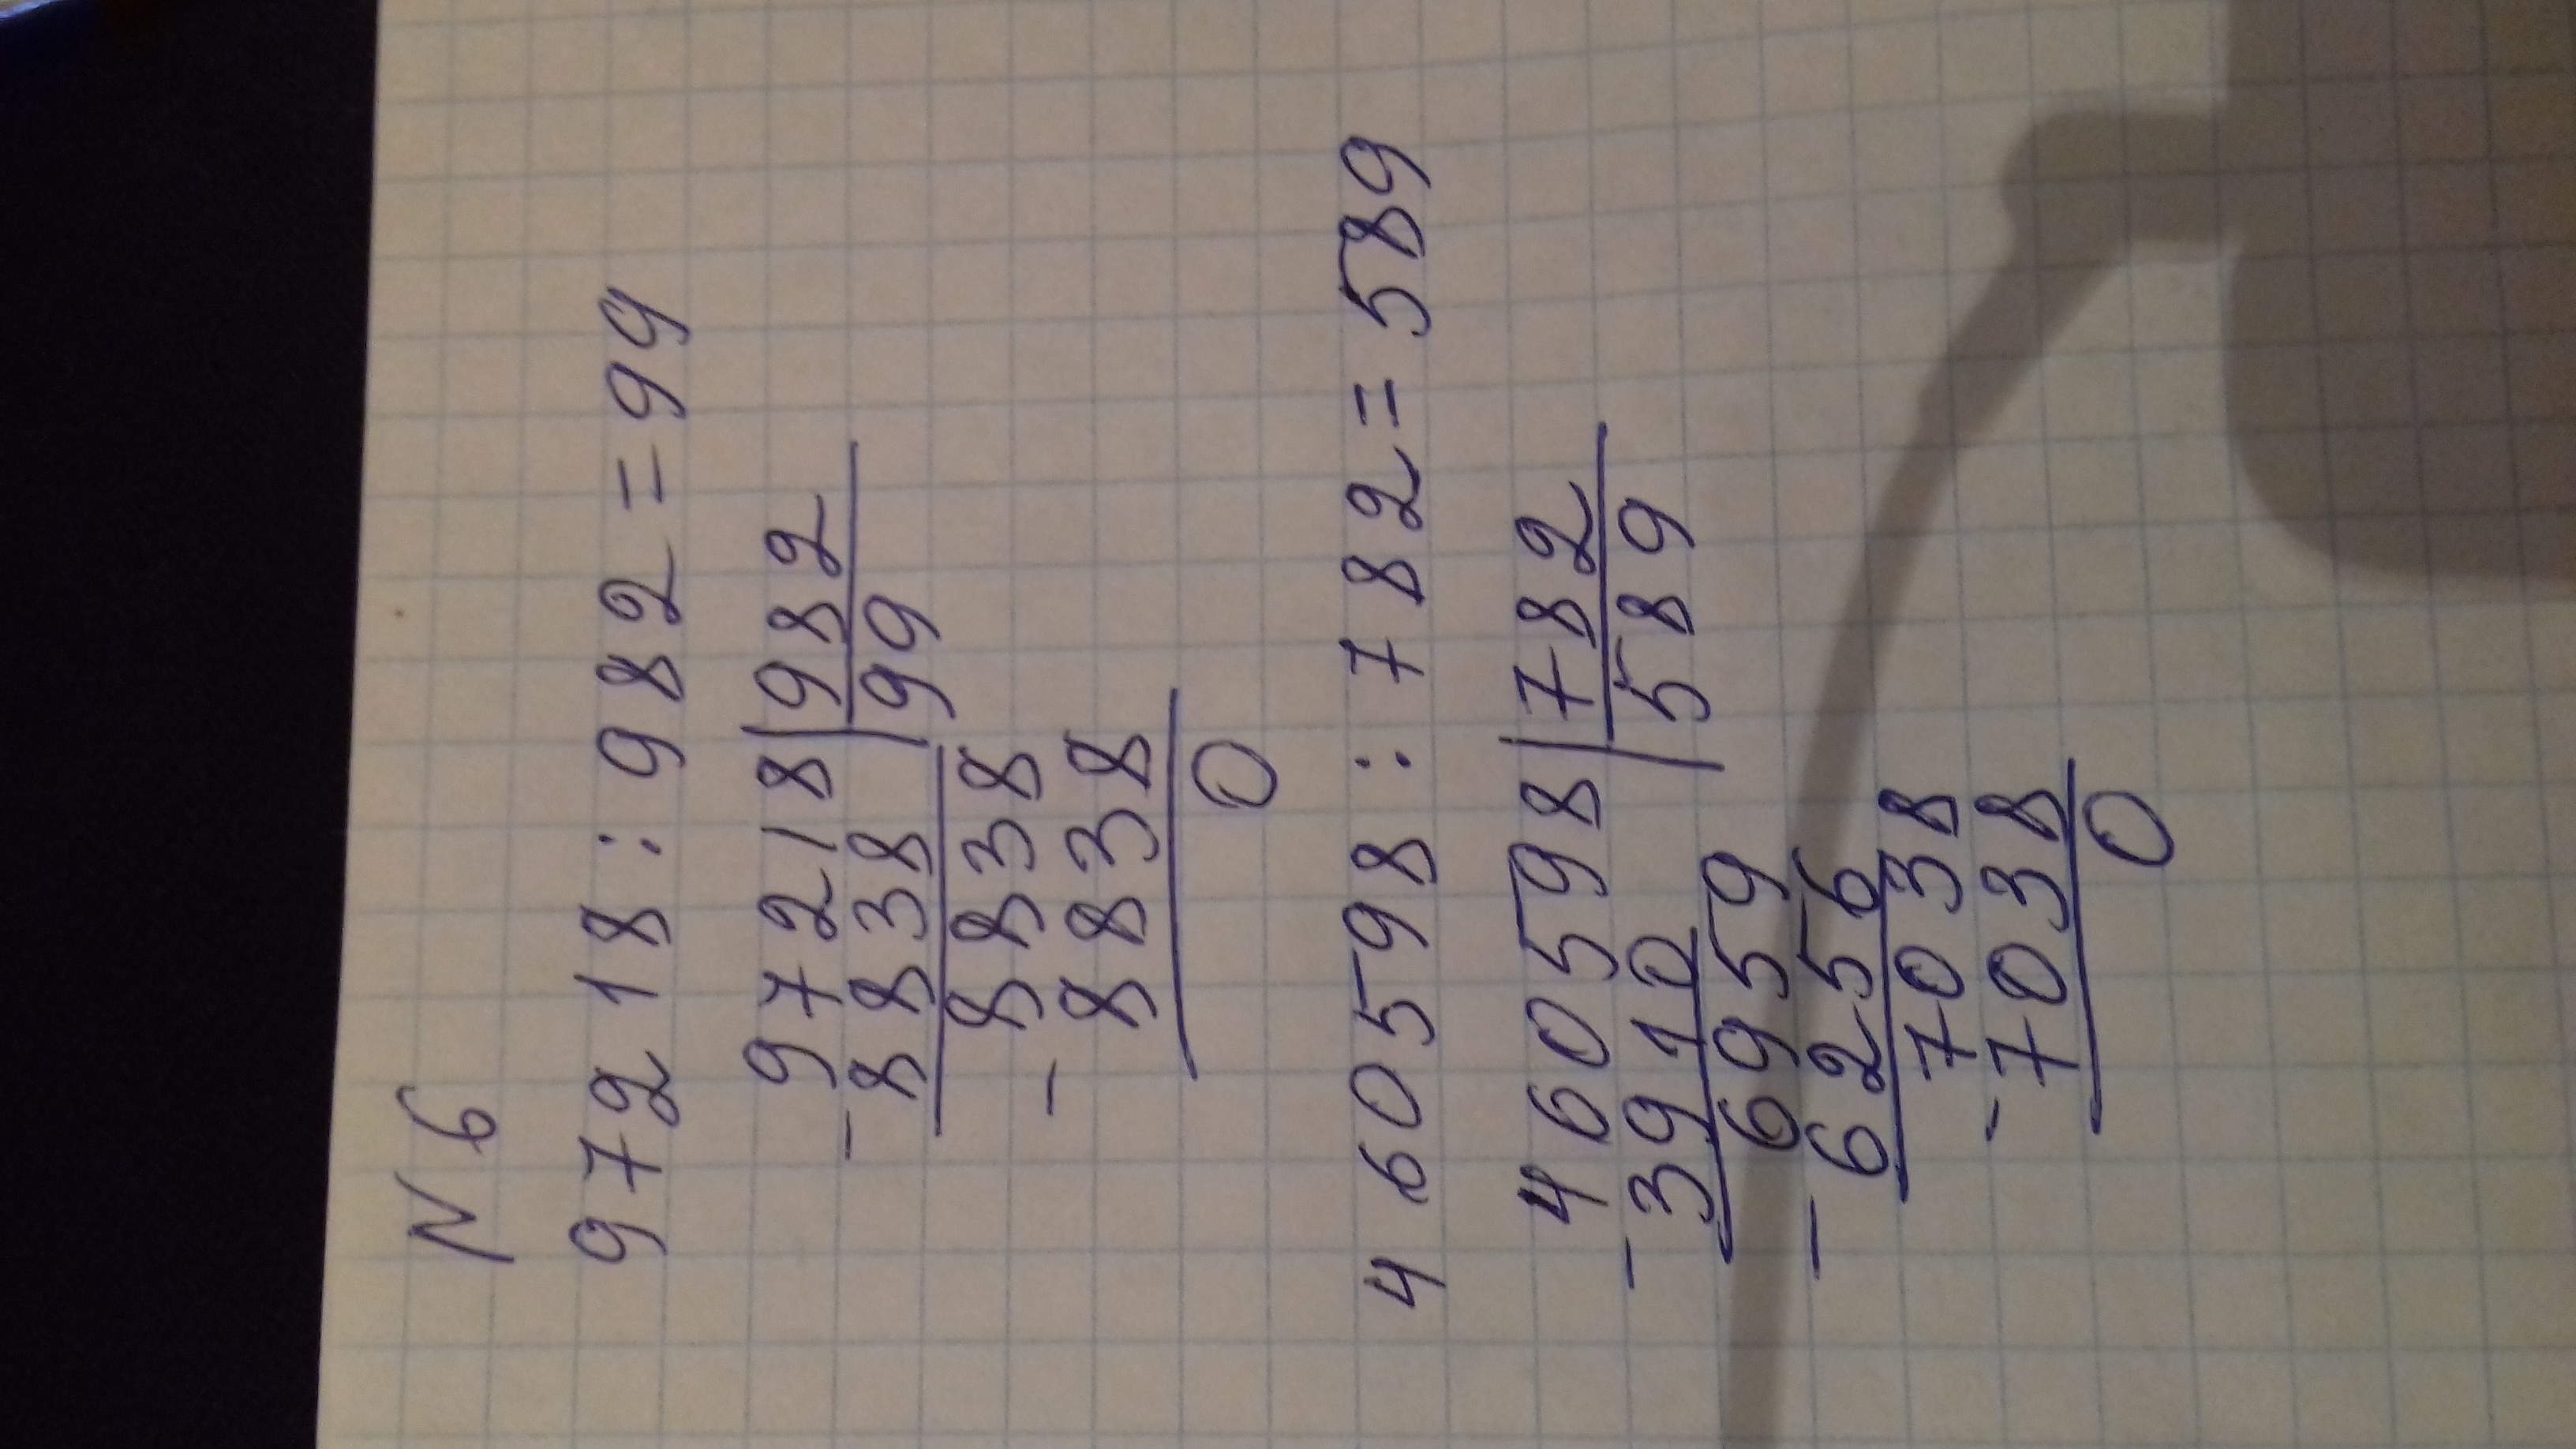 N 6
97218 : 982 = 99
97218|982
-8838 |99
8838
-8838
0
460598 : 782 = 589
460598|782
-3910 |589
6959
-6256
7038
-7038
0